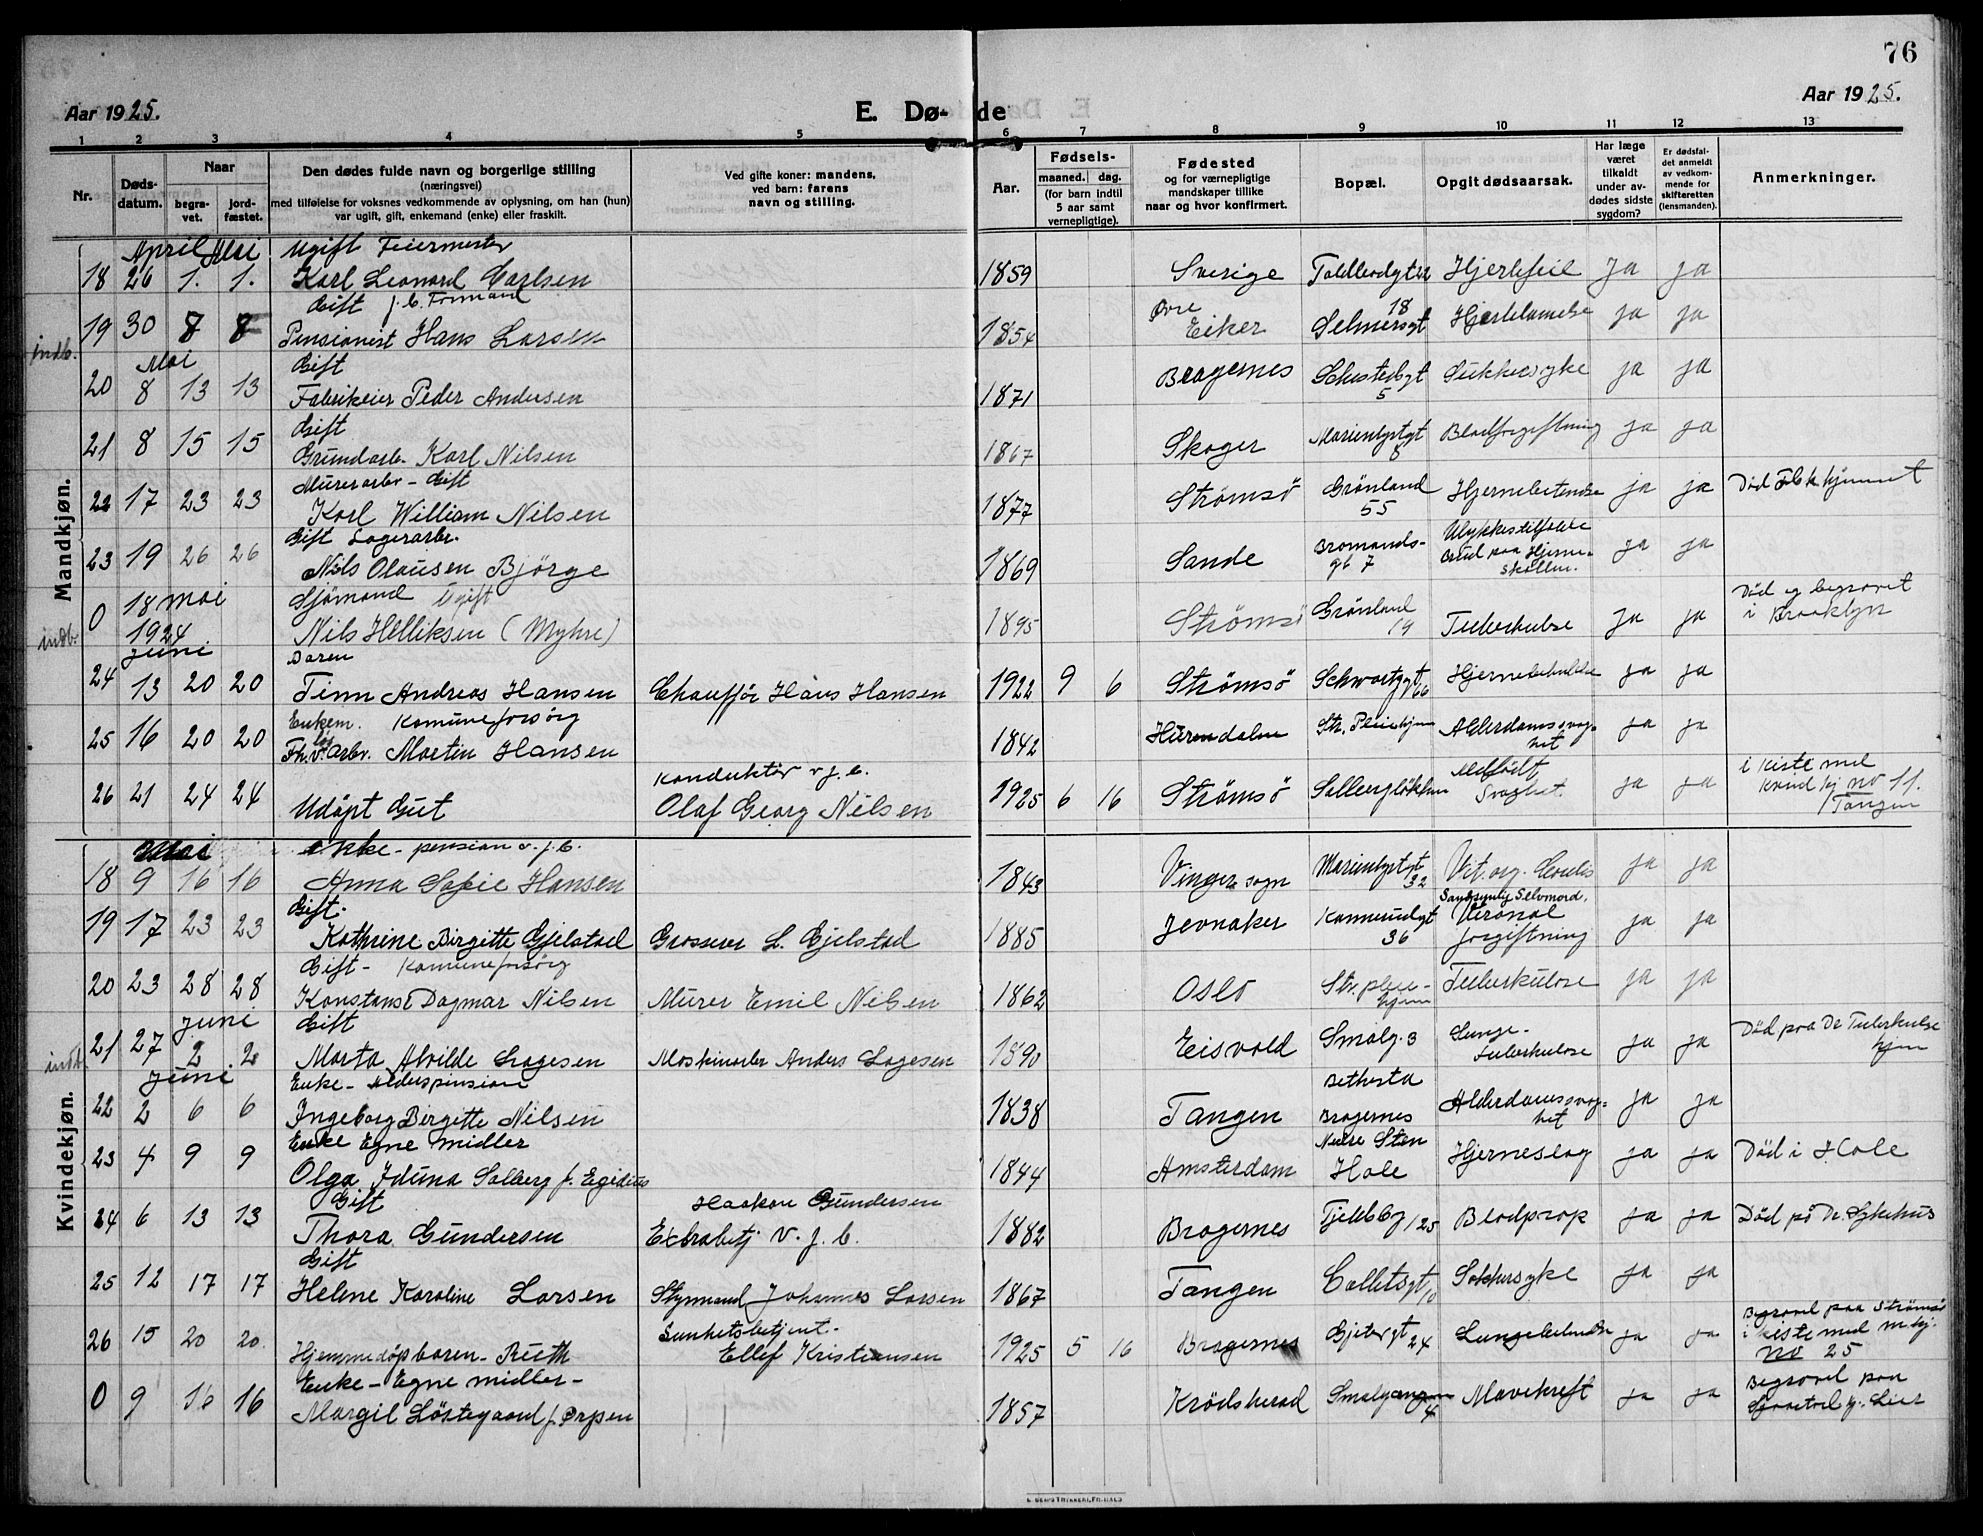 76
Aar 1925. E. Dø- de Aar 1925.
1 2 3 4 5 6 7 8 9 10 11 12 13
Nr. Døds-datum. Naar begra-vet. jord-fæstet. Den dødes fulde navn og borgerlige stilling (næringsvei) med tilføielse for voksnes vedkommende av oplysning, om han (hun) var ugift, gift, enkemand (enke) eller fraskilt. Ved gifte koner: mandens, ved barn: farens navn og stilling. Aar. Fødsels- maaned. dag. (for barn indtil 5 aar samt vernepligtige). Fødested og for værnepligtige mandskaper tillike naar og hvor konfirmert. Bopæl. Opgit dødsaarsak. Har læge været tilkaldt under av-dødes sidste sygdom? Er dødsfal-det anmeldt av vedkom-mende for skifteretten (lensmanden). Anmerkninger.
Mandkjøn.
April Mai Ugift Feiermester
18 26 1. 1. Karl Leonard Carlsen 1859 Sverige Toldbodgt 22 Hjertefeil Ja ja
Gift f. b. Formand
indb. 19 30 8 8 Pensionist Hans Larsen 1854 Øvre Eiker Selmersgt 18 Hjertelamelse ja ja
Mai Gift
20 8 13 13 Fabrikeier Peder Andersen 1871 Bragernes Schultesgt 5 Sukkersyke ja ja
Gift
21 8 15 15 Grundarb. Karl Nilsen 1867 Skoger Marienlystgt 8 Blodforgiftning ja ja
Murerarbr - Gift
22 17 23 23 Karl William Nilsen 1877 Strømsö Grönland 55 Hjernebetendse ja ja Död Folkehjemmet
Gift Lagerarbr.
23 19 26 26 Nils Olausen Björge 1869 Sande Bromands-gt 7 Ulykkestilfælde Brud paa Hjerne-skallen. ja ja
Sjömand Ugift
indb. 0 18 mai 1924 Nils Helliksen (Myhre) 1895 Strømsö Grönland 19 Tuberkulse Ja ja Död og begravet i Brooklyn
Juni Baren
24 13 20 20 Finn Andreas Hansen Chauffør Hans Hansen 1922 9 6 Strømsö Schwartzgt 66 Hjernebetendse ja ja
Enkem. Komuneforsörg
25 16 20 20 Fh. v. løs Arbr. Morten Hansen 1842 Hurendalen Str. Pleiehjem Alderdomssvag-het ja ja
26 21 24 24 Udöpt Gut Konduktör v. j. b. Olaf Georg Nilsen 1925 6 16 Strømsö Solbergløkken Medfödt Svaghet. ja ja i kiste med kvind kj no 11. /Tangen
Kvindekjøn.
Mai Enke - pension v. j. b.
18 9 16 16 Anna Sofie Hansen 1843 Vinger sogn Marienlystgt 32 Vit. org. Cordis ja ja
Gift.
19 17 23 23 Kathrine Birgitte Gjelstad Grosserer L. Gjelstad 1885 Jevnaker Konnerudgt 36 Sandsynlig Selvmord. Veronal forgiftning ja ja
Gift - Komuneforsörg
20 23 28 28 Konstanse Dagmar Nilsen Murer Emil Nilsen 1862 Oslo Str. pleie-hjem Tuberkulose ja ja
Juni Gift
indb. 21 27 2 2 Marta Alvilde Lagesen Maskinarber Anders Lagesen 1890 Eisvold Smalg. 3 Lunge-tuberkulose ja ja Död paa Dr Tuberkulse hjem
Juni Enke - Alderspension
22 2 6 6 Ingeborg Bergette Nilsen 1838 Tangen Bethesta Bragernes Alderdomssvag-het ja ja
Enke Egne midler
23 4 9 9 Olga Iduna Solberg f. Egidius 1844 Amsterdam Nedre Sten Hole Hjerneslag ja ja Död i Hole
Gift
24 6 13 13 Thora Gundersen Haakon Gundersen Extrabetj v. j. b. 1882 Bragernes Fjeldbg 125 Blodprop ja ja Död på Dr. Sykehus
Gift
25 12 17 17 Helene Karoline Larsen Styrmand Johannes Larsen 1867 Tangen Colletsgt 10 Sokkersyke ja ja
26 15 20 20 Hjemmedöpt baren - Ruth Sunhetsbetjent - Ellef Kristiansen 1925 5 16 Bragernes Gjetergt 24 Lungebetendse ja ja Begravet paa Strömsö i kiste med m. kj. no 25
Enke - Egne midler -
0 9 16 16 Margit Löstegaard f. Orpen 1857 Krödsherad Smalgangen 4 Mavekreft ja ja Begravet paa Sjaastad kj. Lier